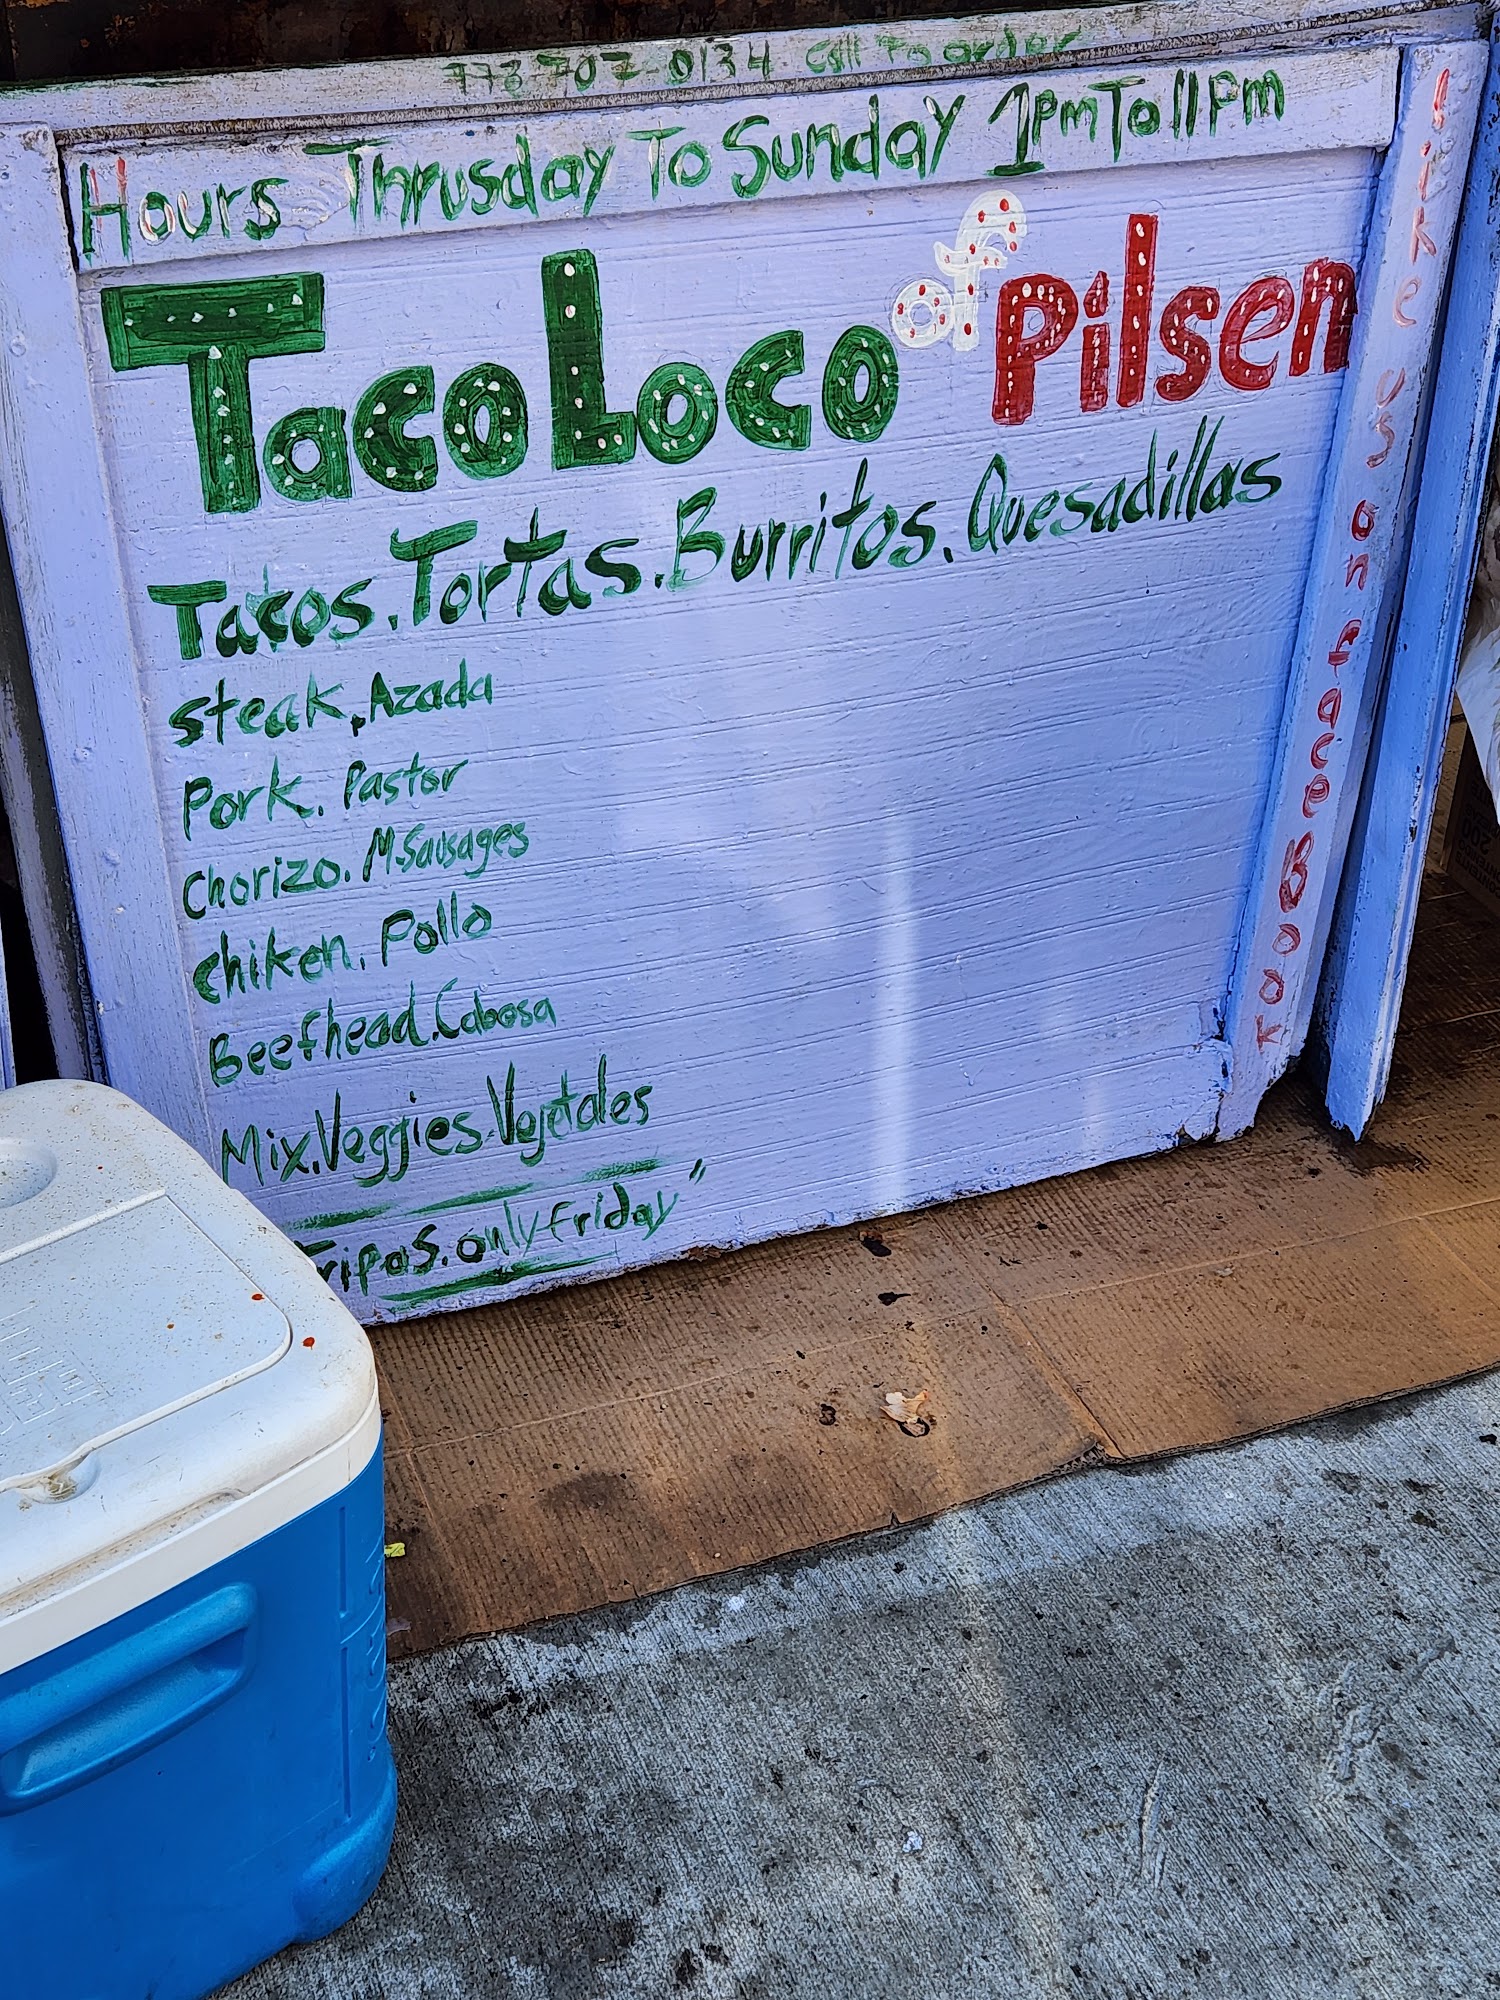 773-707-0134 Call To order
Hours Thrusday To Sunday 1pm To 11pm
Taco Loco of Pilsen
Tacos. Tortas. Burritos. Quesadillas
steak, Azada
Pork. Pastor
Chorizo. M.Sausages
chiken. Pollo
Beefhead. Cabesa
Mix. Veggies. Vegetales
Tripas. only friday"
like us on faceBook